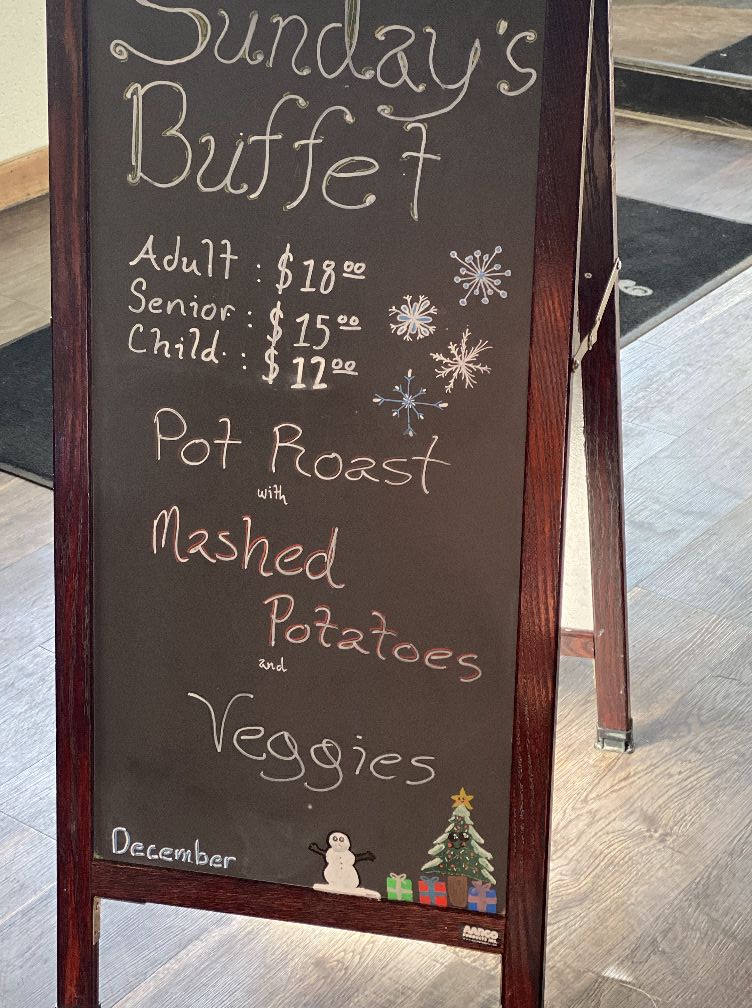 Sunday's
Buffet
Adult : $18⁰⁰
Senior : $15⁰⁰
Child : $12⁰⁰
Pot Roast
with
Mashed
Potatoes
and
Veggies
December
AARCO
PRODUCTS INC.